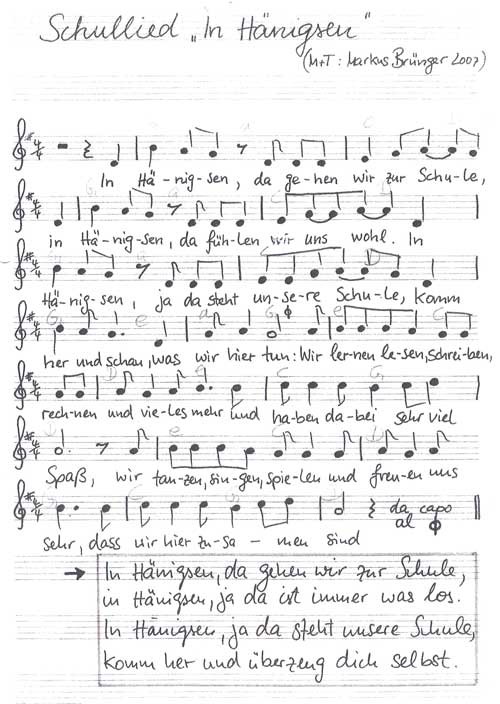 Schullied „In Hänigsen"
(M+T: Markus Brünger 2007)
In Hä-nig-sen, da ge-hen wir zur Schu-le,
in Hä-nig-sen, da füh-len wir uns wohl. In
Hä-nig-sen, ja da steht un-se-re Schu-le, komm
her und schau, was wir hier tun: Wir ler-nen le-sen, schrei-ben,
rech-nen und vie-les mehr und ha-ben da-bei sehr viel
Spaß, wir tan-zen, sin-gen, spie-len und freu-en uns
da capo
al
sehr, dass wir hier zu-sa-men sind
→ In Hänigsen, da gehen wir zur Schule,
in Hänigsen, ja da ist immer was los.
In Hänigsen, ja da steht unsere Schule,
komm her und überzeug dich selbst.